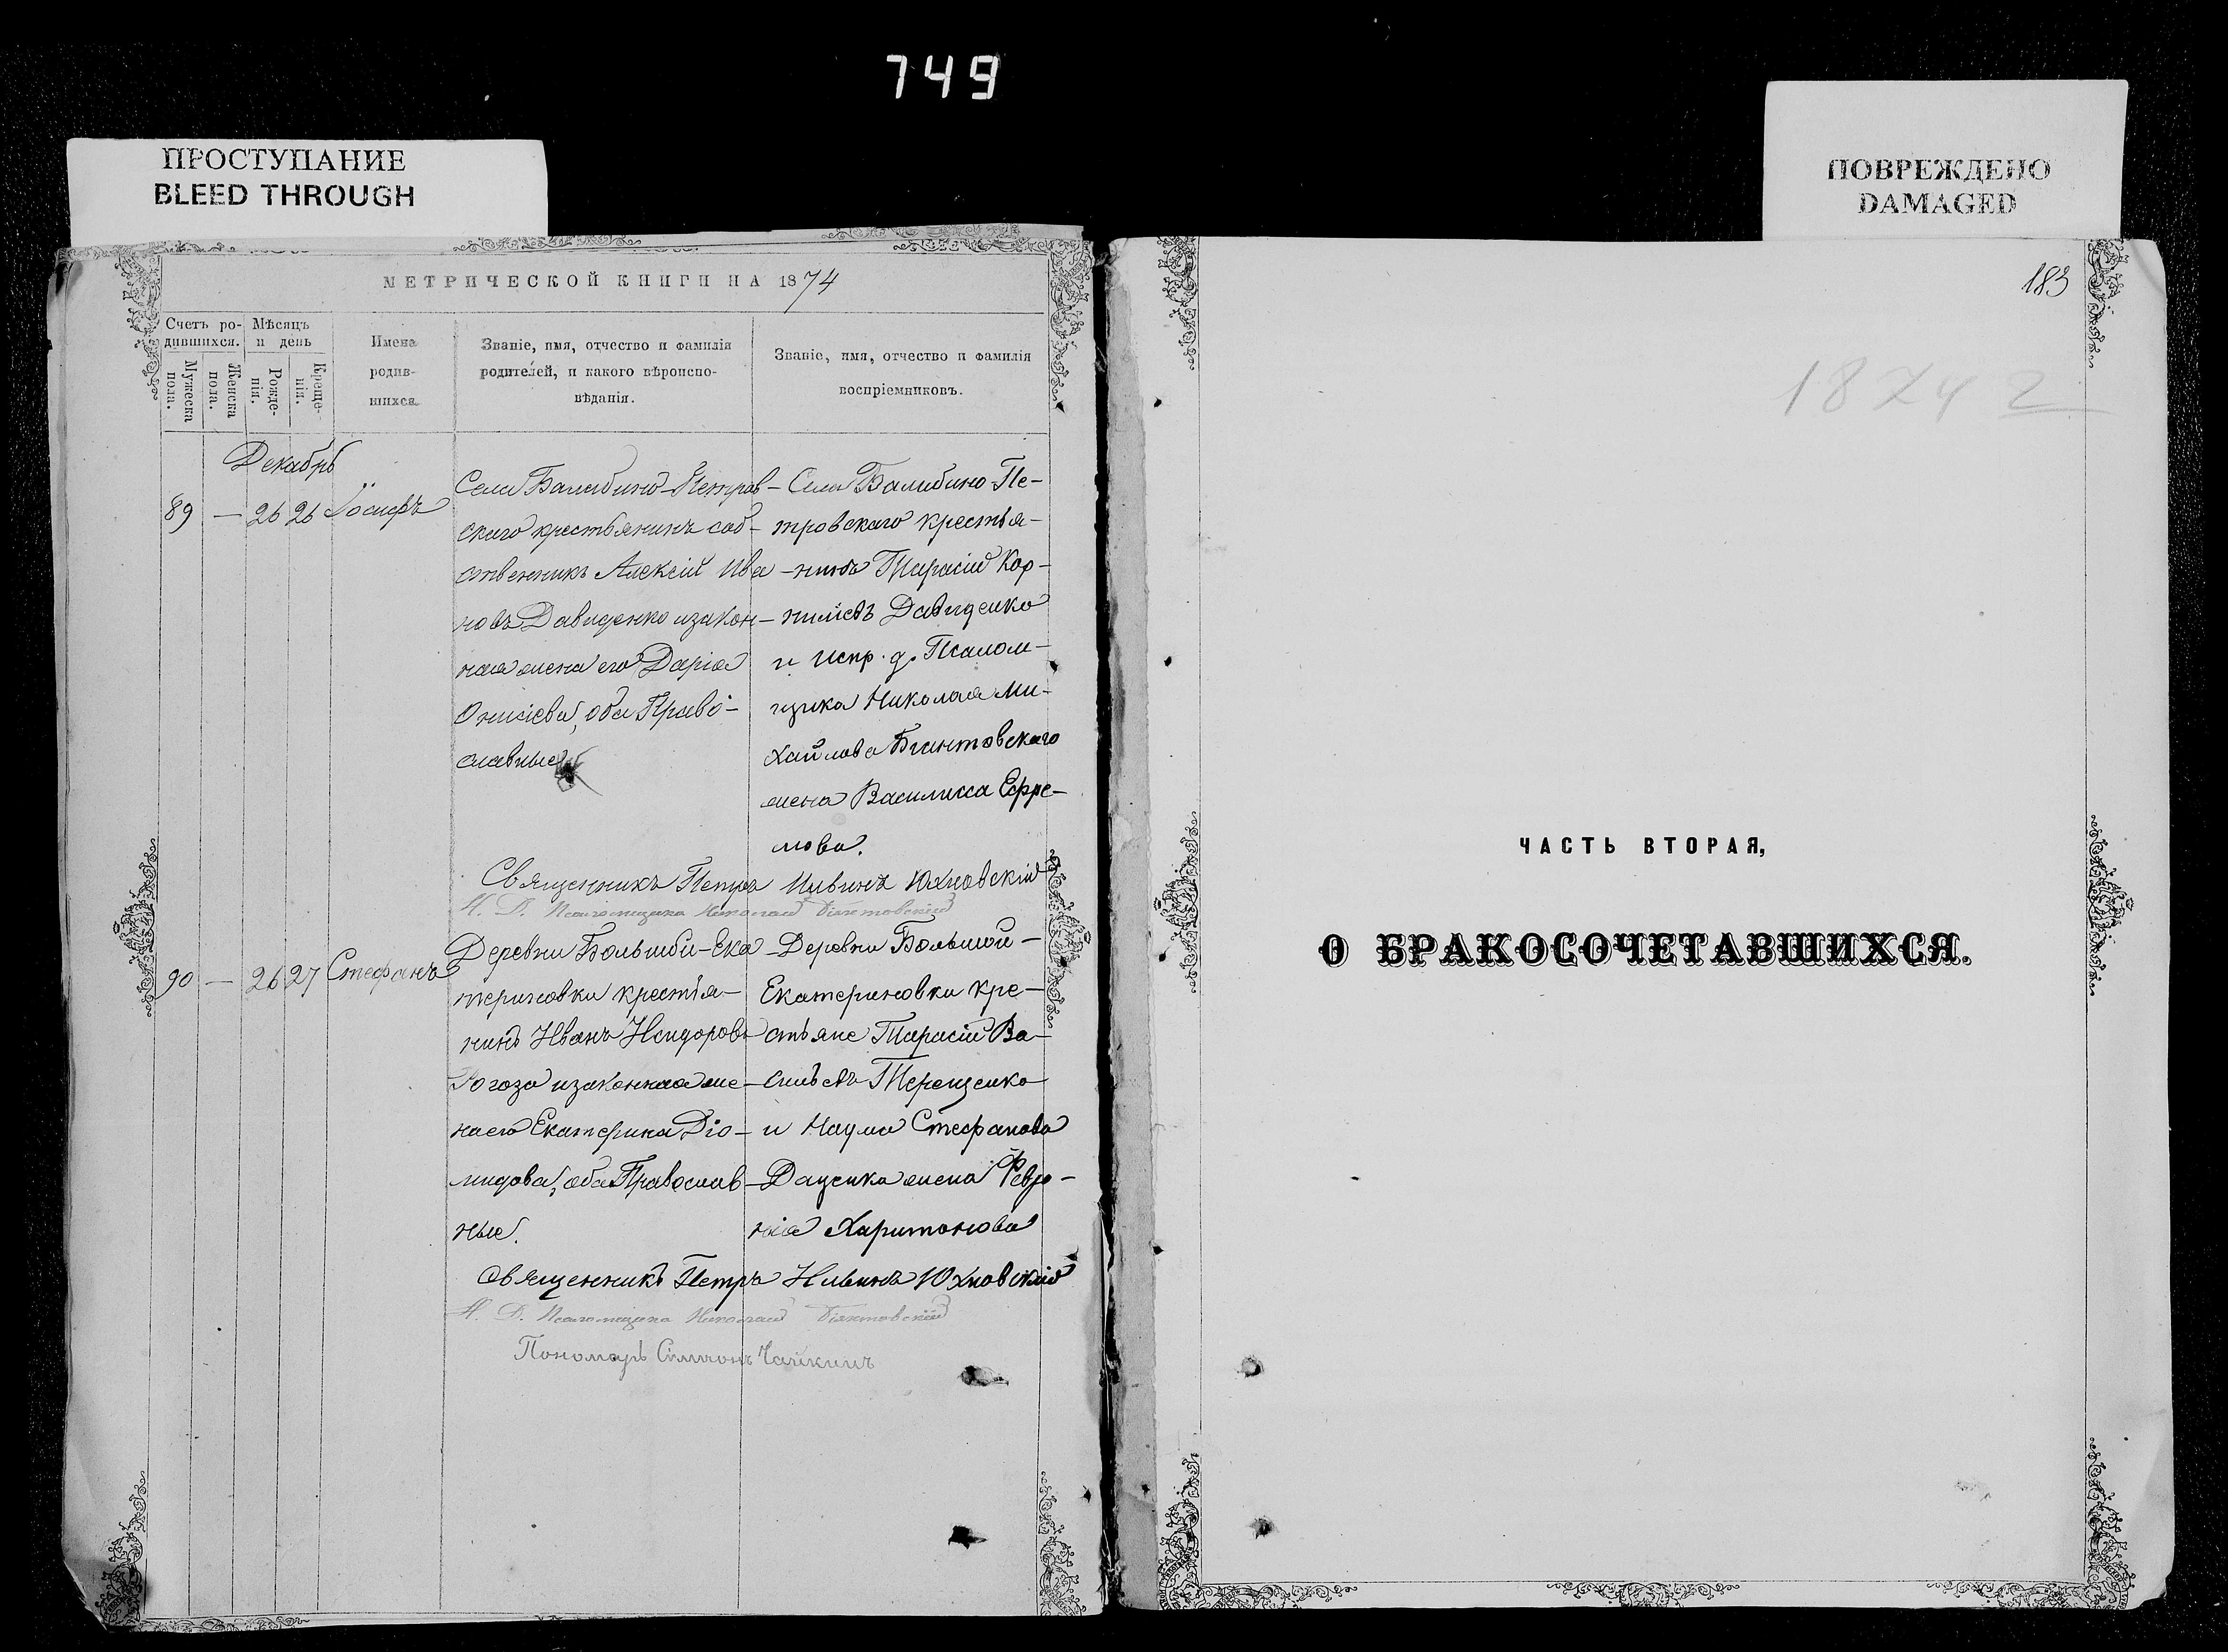 749
ПРОСТУПАНИЕ
BLEED THROUGH
ПОВРЕЖДЕНО
DAMAGED
МЕТРИЧЕСКОЙ КНИГИ НА 1874
Счетъ ро-
дившихся.
Мужеска
пола.
Женска
пола.
Мѣсяцъ
и день
Рожде-
нія.
Креще-
нія.
Имена
родив-
шихся.
Званіе, имя, отчество и фамилія
родителей, и какого вѣроиспо-
вѣданія.
Званіе, имя, отчество и фамилія
воспріемниковъ.
Декабрь
89 — 26 26 Іосифъ
Села Балибино-Петров-
скаго крестьянинъ соб-
ственникъ Алексій Ива-
новъ Давиденко и закон-
ная жена его Дарія
Онисіева, оба Право-
славные
Села Балибино-Пе-
тровскаго крестья-
нинъ Тарасій Кор-
ниліевъ Давиденко
и испр. д. Псалом-
щика Николая Ми-
хайлова Бѣянтовскаго
жена Василисса Ефре-
мова.
Священникъ Петръ Ильинъ Юхновскій
И. Д. Псаломщика Николай
90 — 26 27 Стефанъ
Деревни Большой-Ека-
териновки крестья-
нинъ Иванъ Исидоровъ
Рогоза и законная же-
на его Екатерина Діо-
мидова, оба Православ-
ные.
Деревни Большой-
Екатериновки кре-
стьяне Тарасій Ва-
сильевъ Терещенко
и Наума Стефанова
Даценка жена Февро-
нія Харитонова
Священникъ Петръ Ильинъ Юхновскій
И. Д. Псаломщика Николай
Пономарь Симеонъ Чайкинъ
183
1874 2
ЧАСТЬ ВТОРАЯ,
О БРАКОСОЧЕТАВШИХСЯ.